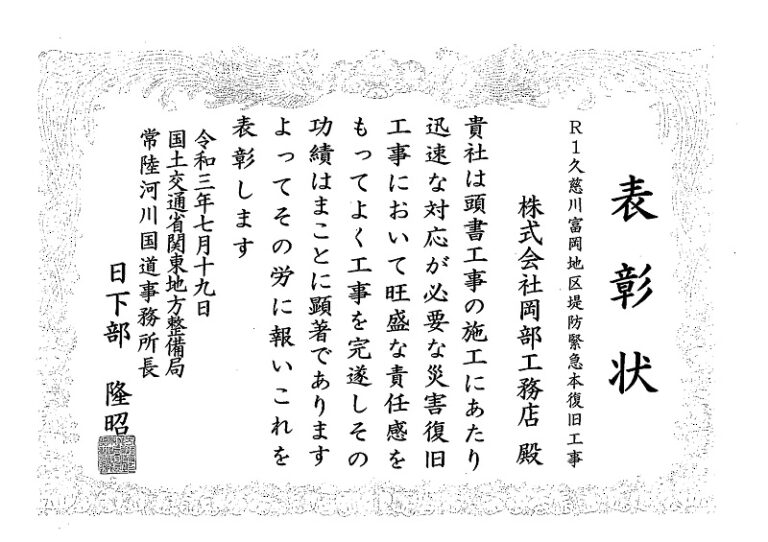 表彰状
R1久慈川富岡地区堤防緊急本復旧工事
株式会社岡部工務店 殿
貴社は頭書工事の施工にあたり
迅速な対応が必要な災害復旧
工事において旺盛な責任感を
もってよく工事を完遂しその
功績はまことに顕著であります
よってその労に報いこれを
表彰します
令和三年七月十九日
国土交通省関東地方整備局
常陸河川国道事務所長
日下部 隆昭